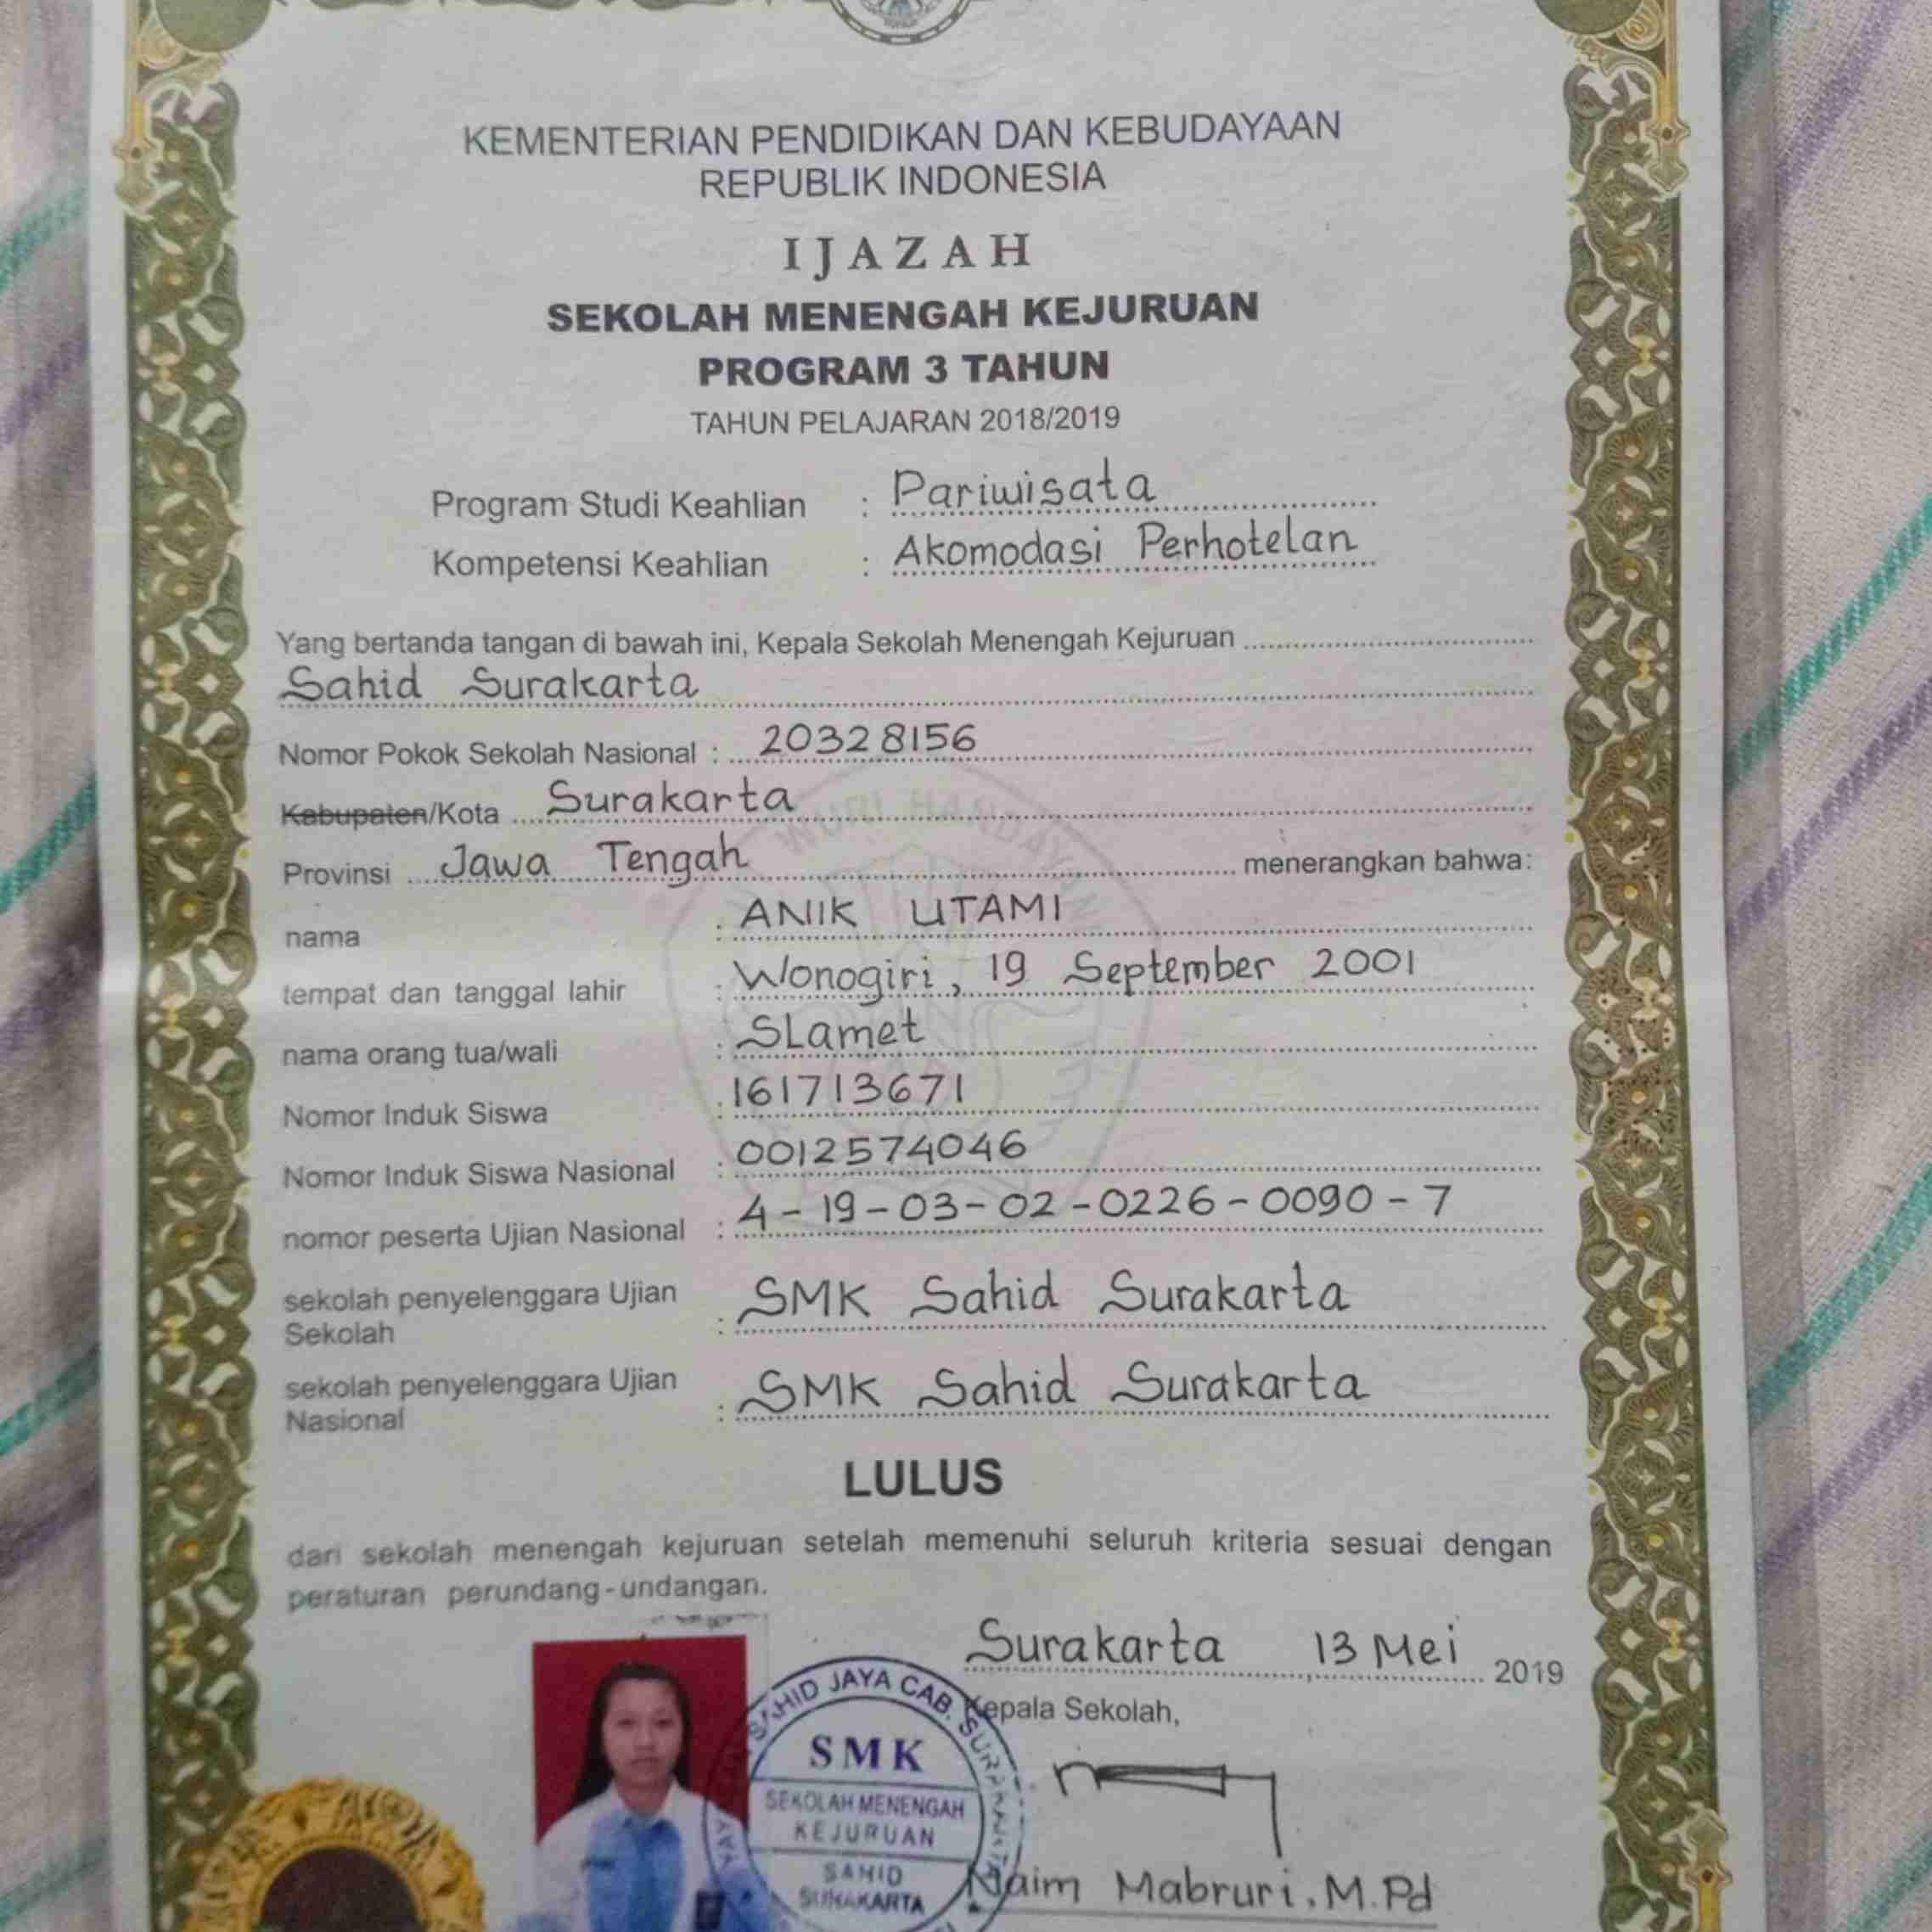 KEMENTERIAN PENDIDIKAN DAN KEBUDAYAAN
REPUBLIK INDONESIA
IJAZAH
SEKOLAH MENENGAH KEJURUAN
PROGRAM 3 TAHUN
TAHUN PELAJARAN 2018/2019
Program Studi Keahlian : Pariwisata
Kompetensi Keahlian : Akomodasi Perhotelan
Yang bertanda tangan di bawah ini, Kepala Sekolah Menengah Kejuruan
Sahid Surakarta
Nomor Pokok Sekolah Nasional : 20328156
Kabupaten/Kota Surakarta
Provinsi Jawa Tengah menerangkan bahwa:
nama : ANIK UTAMI
tempat dan tanggal lahir : Wonogiri, 19 September 2001
nama orang tua/wali : SLamet
Nomor Induk Siswa : 161713671
Nomor Induk Siswa Nasional : 0012574046
nomor peserta Ujian Nasional : 4-19-03-02-0226-0090-7
sekolah penyelenggara Ujian
Sekolah : SMK Sahid Surakarta
sekolah penyelenggara Ujian
Nasional : SMK Sahid Surakarta
LULUS
dari sekolah menengah kejuruan setelah memenuhi seluruh kriteria sesuai dengan
peraturan perundang-undangan.
Surakarta, 13 Mei 2019
Kepala Sekolah,
SAHID JAYA CAB. SURAKARTA
SMK
SEKOLAH MENENGAH
KEJURUAN
SAHID
SURAKARTA
Naim Mabruri, M.Pd